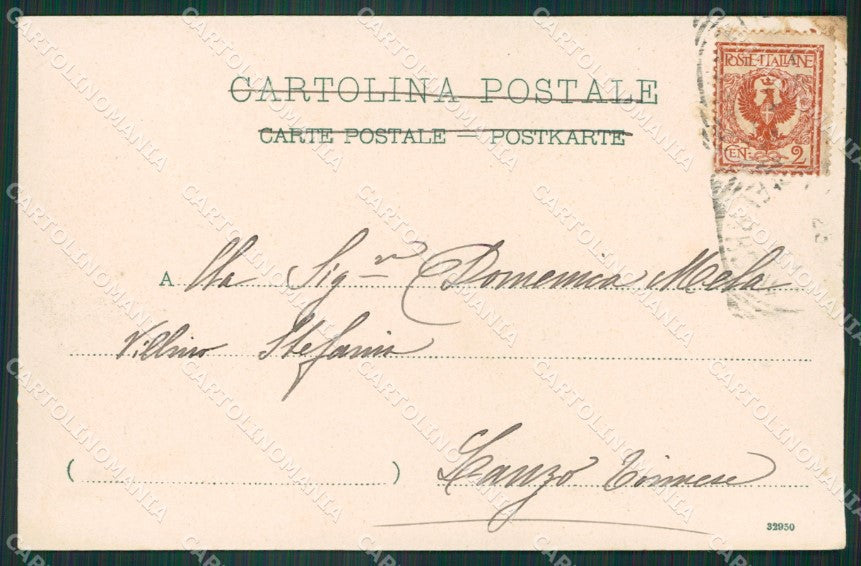 CARTOLINA POSTALE
CARTE POSTALE — POSTKARTE
POSTE·ITALIANE
CEN. 2
A lla Sigra Domenica Mela
Villino Stefania
( ) Lanzo Torinese
32950
CARTOLINOMANIA